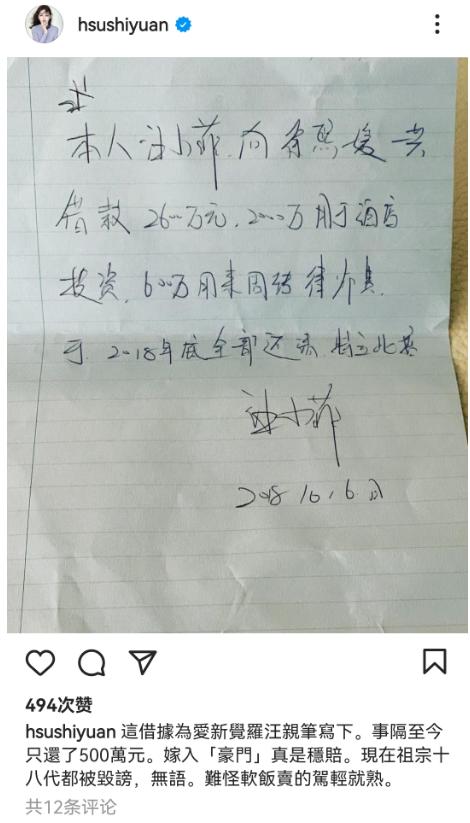 hsushiyuan
本人汪小菲.向徐熙媛共
借款2600万元.2000万用于酒店
投资,600万用来周转
于2018年底全部还清.特立此
汪小菲
2018 10.6.日
494次赞
hsushiyuan 這借據為愛新覺羅汪親筆寫下。事隔至今
只還了500萬元。嫁入「豪門」真是穩賠。現在祖宗十
八代都被毀謗，無語。難怪軟飯賣的駕輕就熟。
共12条评论